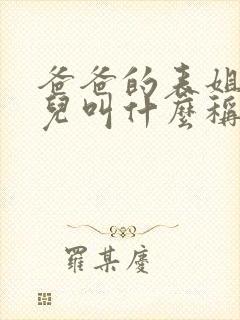 爸爸的表姐
兒叫什麼稱
羅某慶